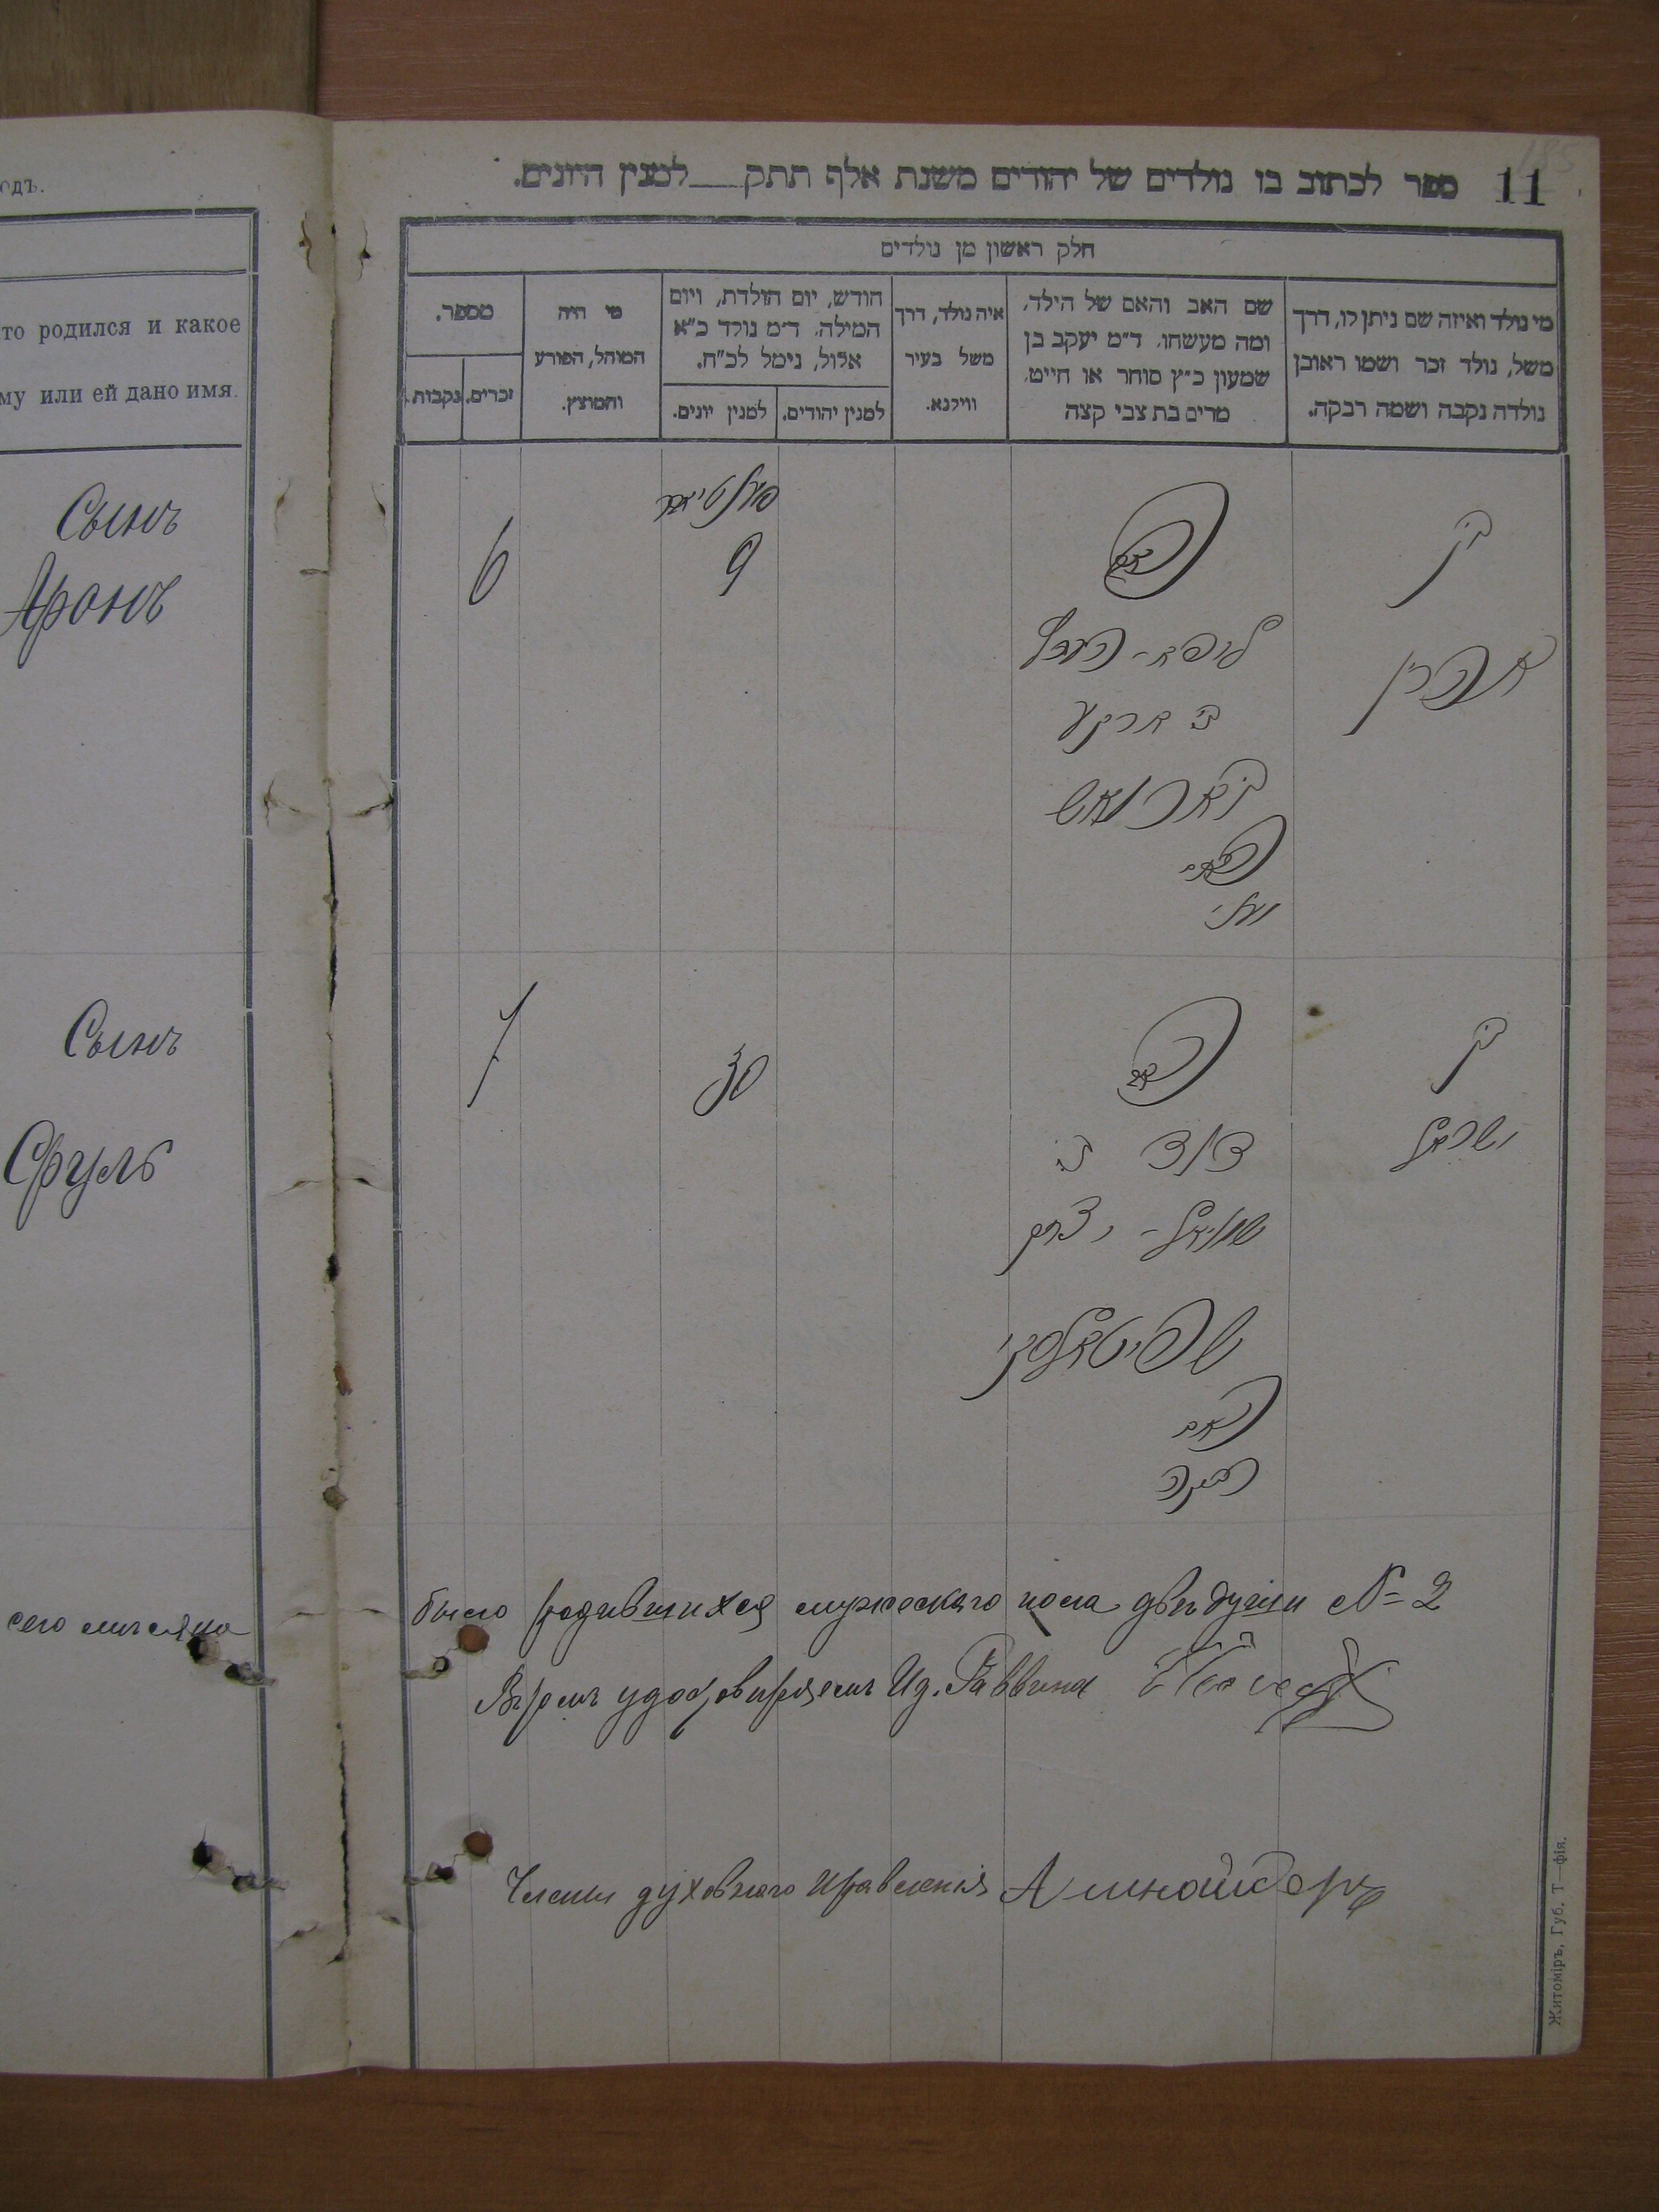 одъ.
то родился и какое
му или ей дано имя.
Сынъ
Аронъ
Сынъ
Сруль
сего мѣсяца
185
11 ספר לכתוב בו נולדים של יהודים משנת אלף תתק___למנין היונים.
חלק ראשון מן נולדים
מי נולד ואיזה שם ניתן לו, דרך
משל, נולד זכר ושמו ראובן
נולדה נקבה ושמה רבקה.
שם האב והאם של הילד,
ומה מעשהו. ד״מ יעקב בן
שמעון כ״ץ סוחר או חייט,
מרים בת צבי קצה
איה נולד, דרך
משל בעיר
ווילנא.
חודש, יום הולדת, ויום
המילה. ד״מ נולד כ״א
אלול, נימל לכ״ח.
למנין יהודים.
למנין יונים.
מי היה
המוהל, הפורע
והמוצץ.
מספר.
זכרים.
נקבות.
בן
אהרן
האב
ליפא-
בי
האם
9
6
בן
ישראל
האב
דוד בי
שמואל-
האם
30
7
было родившихся мужескаго пола двѣ души № 2
Вѣрно удостовѣряемъ Ид. Раввина
Члены духовнаго правленія А Шнайдеръ
Житоміръ, Губ. Т—фія.